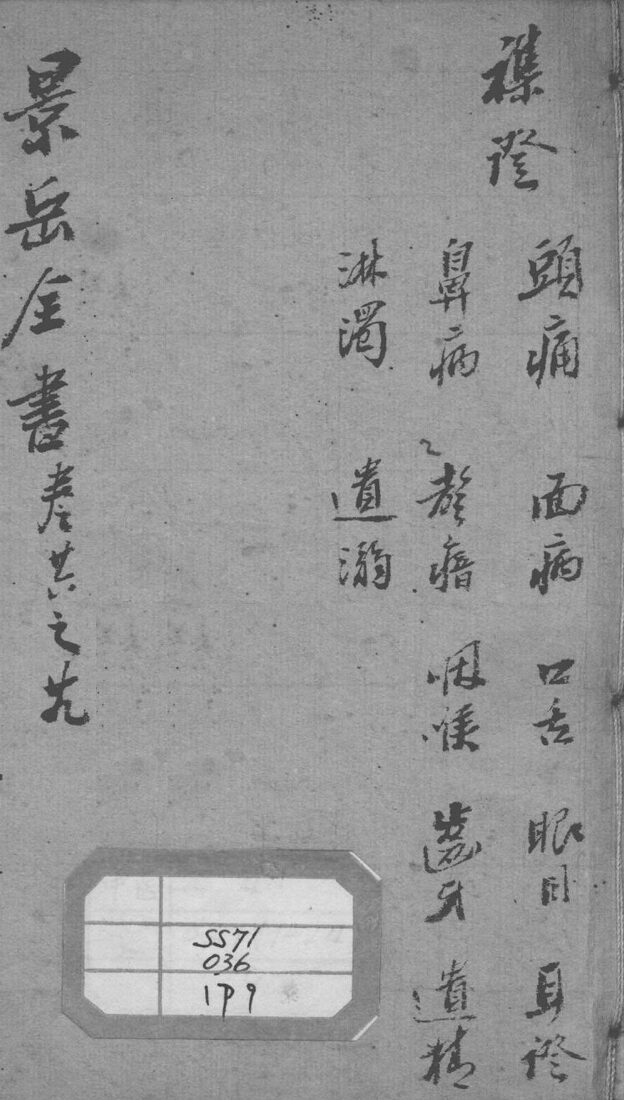 襍證
頭痛 面病 口舌 眼目 耳證
鼻病 聲瘖 咽喉 齒牙 遺精
淋濁 遺溺
景岳全書卷廿六之廿九
SS71
036
1P9